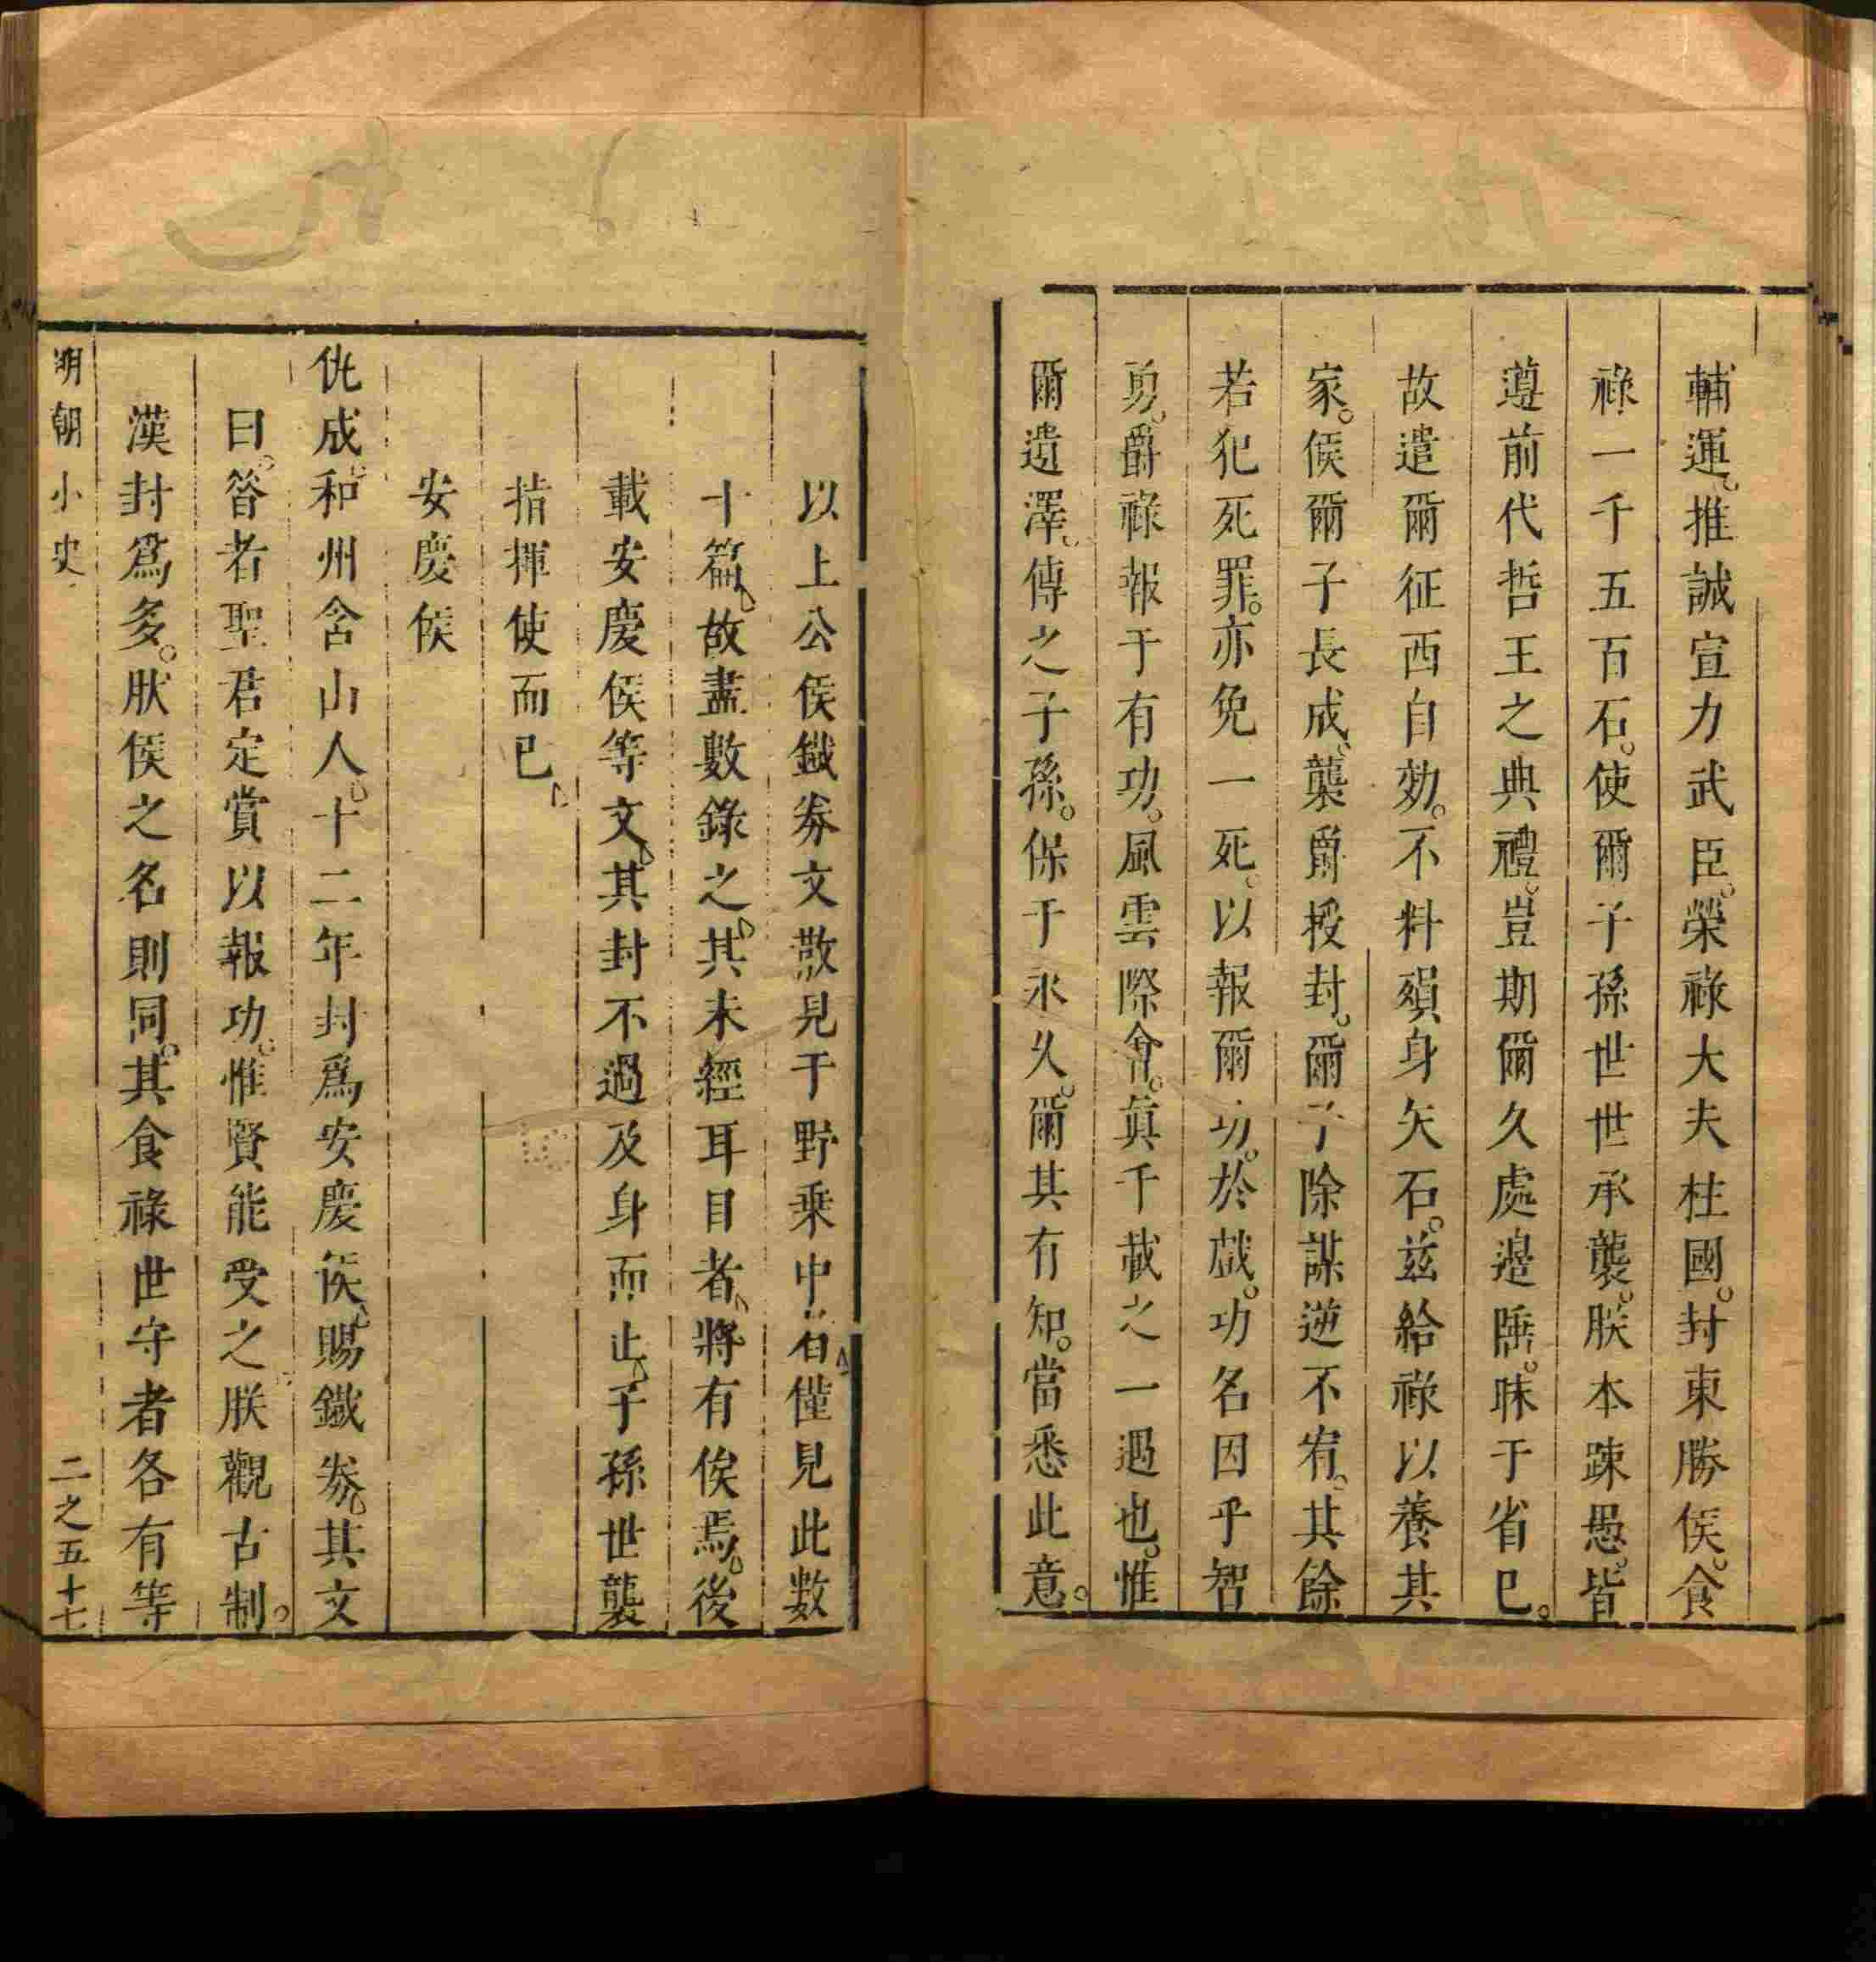 輔運。推誠宣力武臣。榮祿大夫柱國。封東勝侯。食
祿一千五百石。使爾子孫世世承襲。朕本疎愚。皆
遵前代哲王之典禮。豈期爾久處邊陲。昧于省已。
故遣爾征西自効。不料殞身矢石。茲給祿以養其
家。候爾子長成、襲爵授封。爾子除謀逆不宥。其餘
若犯死罪。亦免一死。以報爾功。於戲。功名因乎智
勇。爵祿報于有功。風雲際會。真千載之一遇也。惟
爾遺澤。傳之子孫。保于永久。爾其有知。當悉此意。
以上公侯鐵券文散見于野乘中者、僅見此數
十篇、故盡數錄之。其未經耳目者、將有俟焉。後
載安慶侯等文、其封不過及身而止、子孫世襲
指揮使而已、
安慶侯
仇成。和州含山人。十二年封爲安慶侯、賜鐵券。其文
曰。昝者聖君定賞以報功。惟賢能受之。朕觀古制。
漢封爲多。朕侯之名則同。其食祿世守者各有等
明朝小史
二之五十七